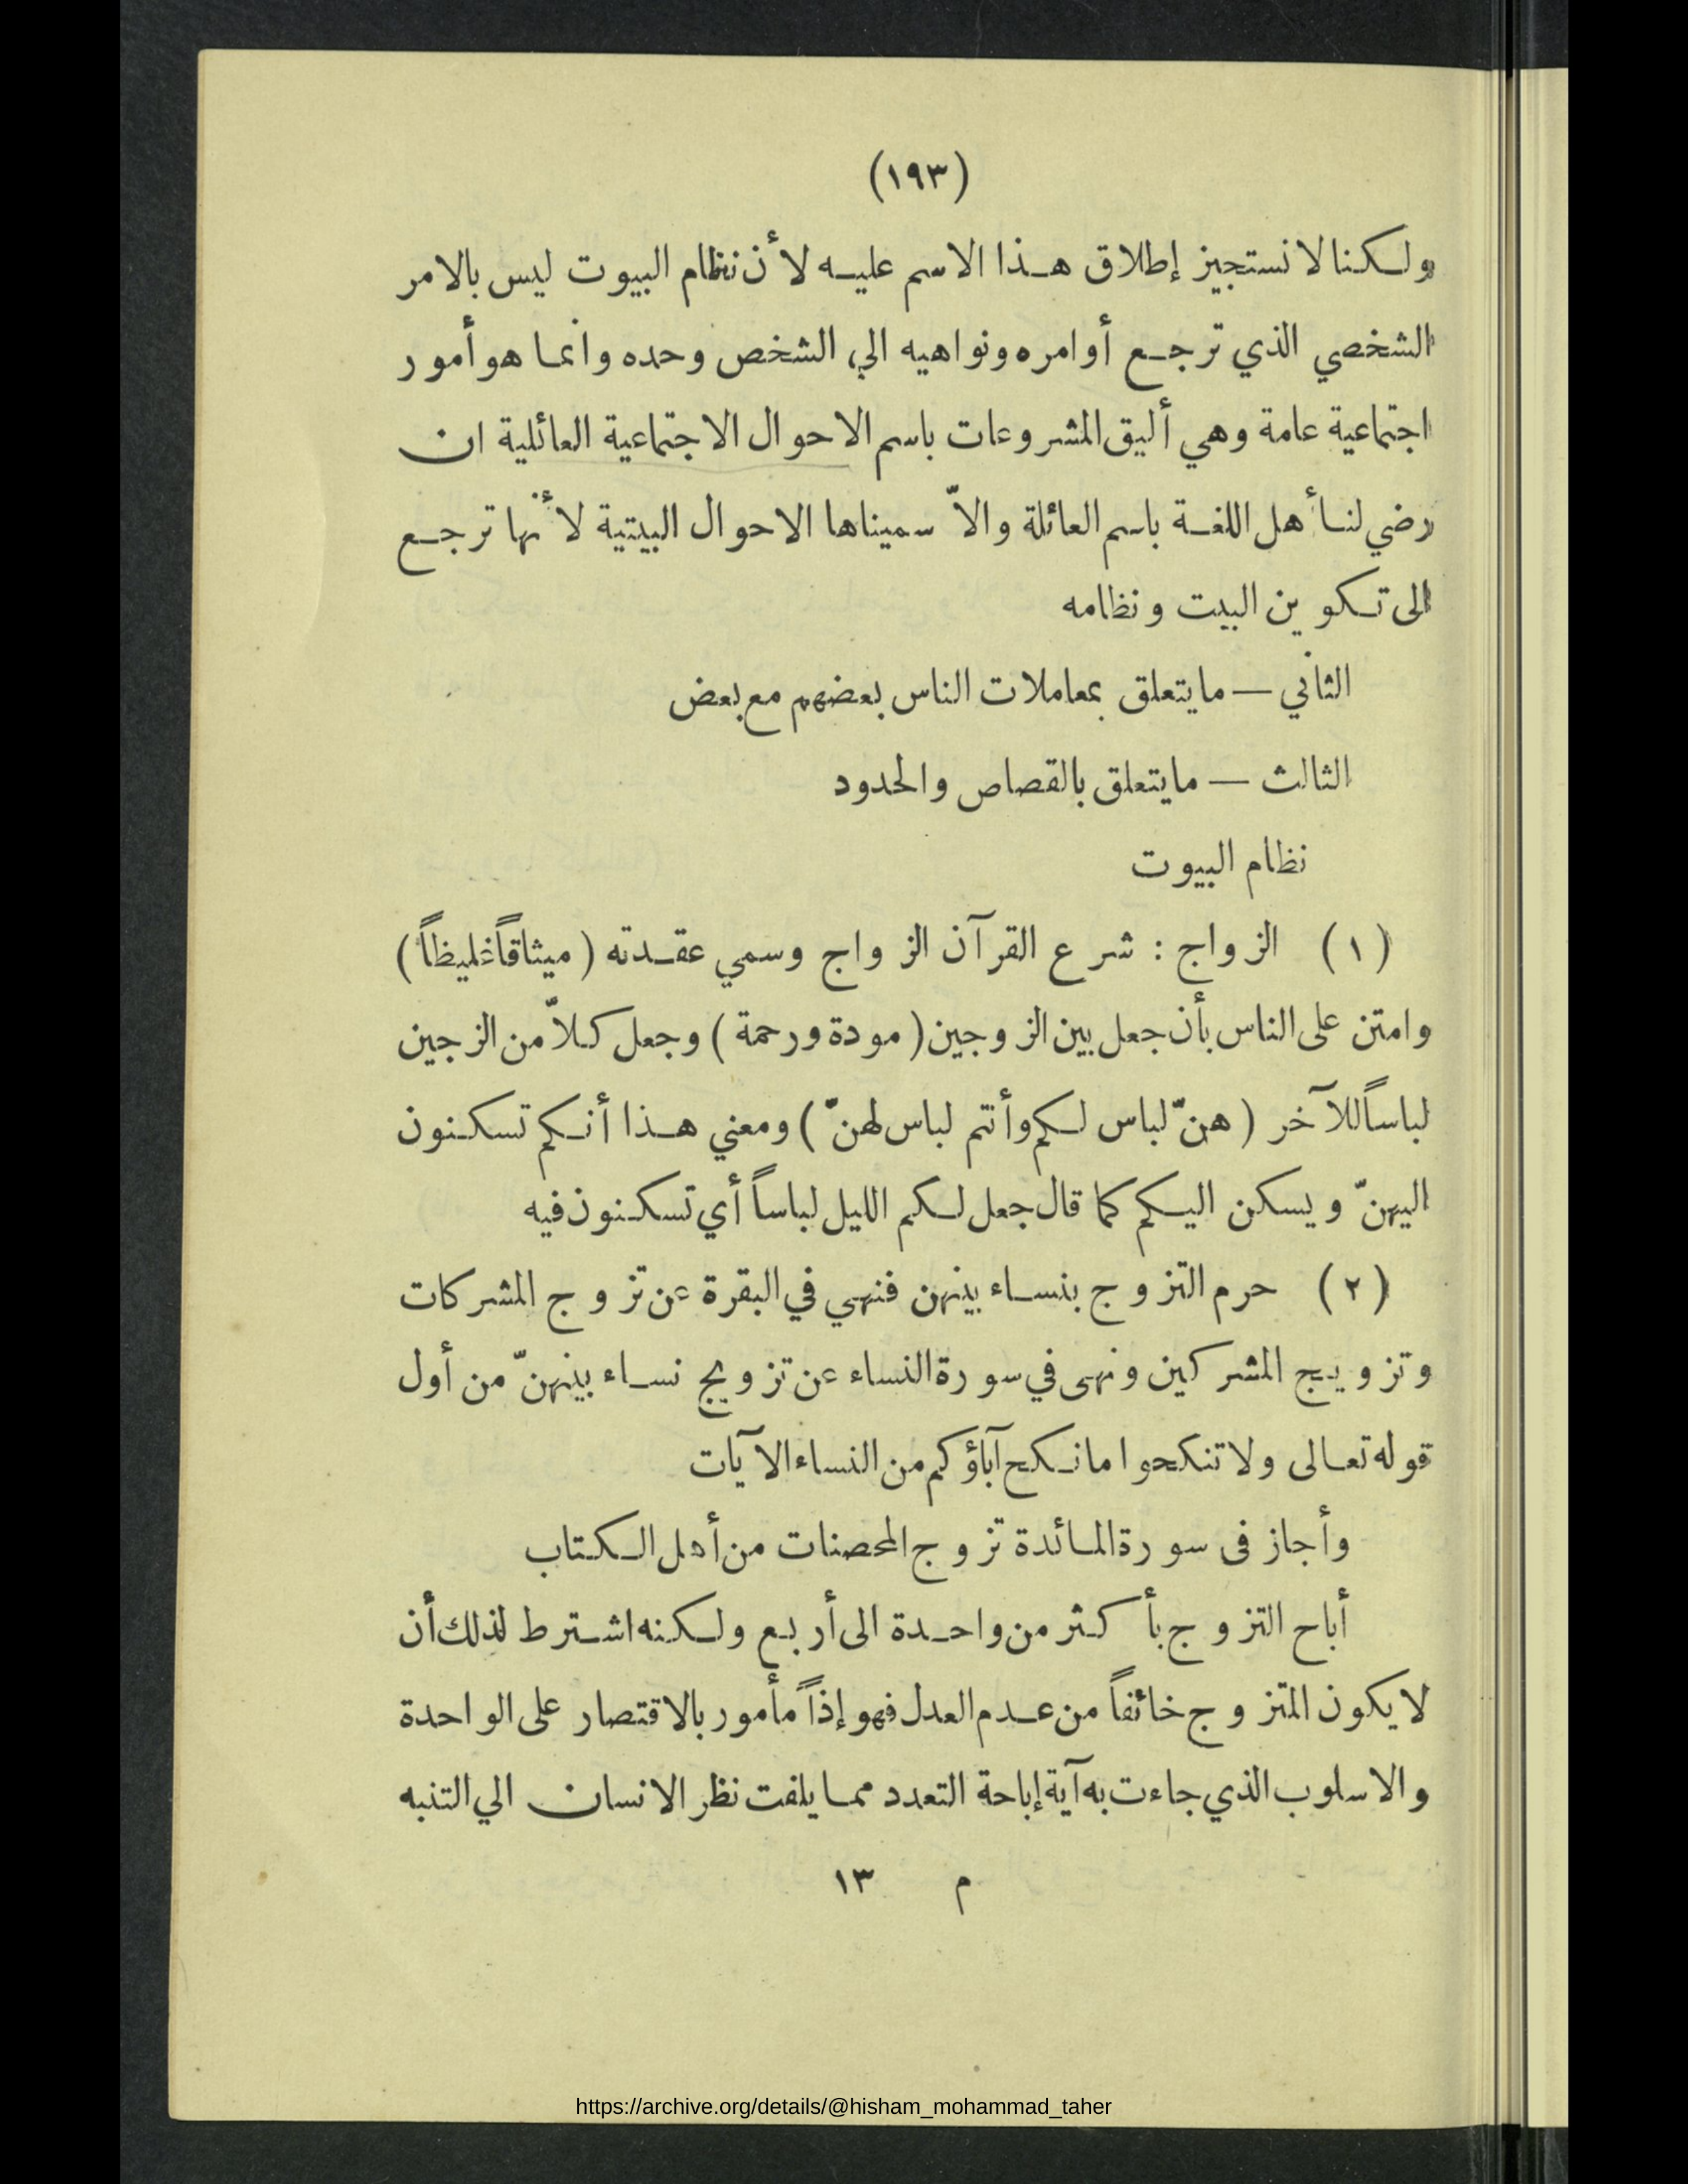 (١٩٣)
ولكنا لا نستجيز إطلاق هذا الاسم عليه لأن نظام البيوت ليس بالامر
الشخصي الذي ترجع أوامره ونواهيه الي الشخص وحده وانما هو أمور
اجتماعية عامة وهي أليق المشروعات باسم الاحوال الاجتماعية العائلية ان
رضي لنا أهل اللغة باسم العائلة والاّ سميناها الاحوال البيتية لأنها ترجع
الى تكوين البيت ونظامه
الثاني — ما يتعلق بمعاملات الناس بعضهم مع بعض
الثالث — ما يتعلق بالقصاص والحدود
نظام البيوت
(١) الزواج : شرع القرآن الزواج وسمي عقدته (ميثاقاً غليظاً)
وامتن على الناس بأن جعل بين الزوجين (مودة ورحمة) وجعل كلاّ من الزجين
لباساً للآخر (هنّ لباس لكم وأنتم لباس لهنّ) ومعني هذا أنكم تسكنون
اليهنّ ويسكن اليكم كما قال جعل لكم الليل لباساً أي تسكنون فيه
(٢) حرم التزوج بنساء بينهن فنهي في البقرة عن تزوج المشركات
وتزويج المشركين ونهى في سورة النساء عن تزويج نساء بينهنّ من أول
قوله تعالى ولا تنكحوا ما نكح آباؤكم من النساء الآيات
وأجاز فى سورة المائدة تزوج المحصنات من أهل الكتاب
أباح التزوج بأكثر من واحدة الى أربع ولكنه اشترط لذلك أن
لا يكون المتزوج خائفاً من عدم العدل فهو إذاً مأمور بالاقتصار على الواحدة
والاسلوب الذي جاءت به آية إباحة التعدد مما يلفت نظر الانسان الي التنبه
م ١٣
https://archive.org/details/@hisham_mohammad_taher